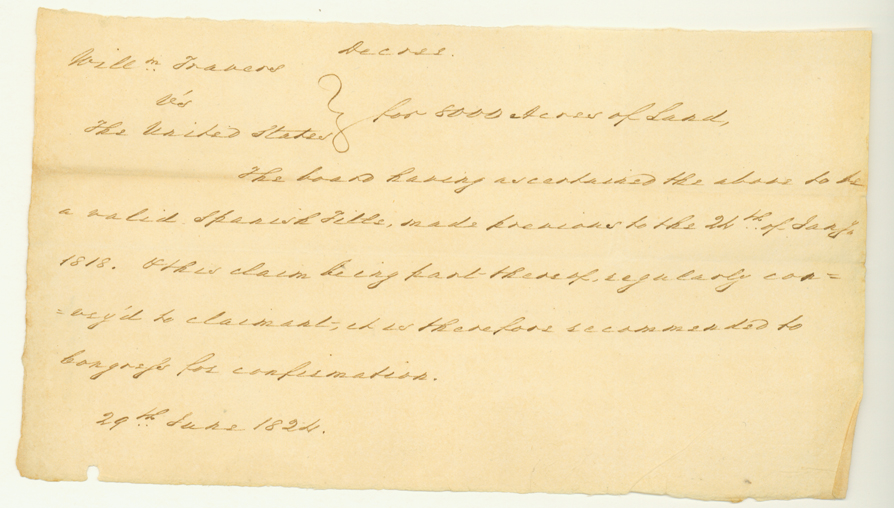 Decree.
Will.m Travers
v's
The United States } for 8000 Acres of Land,
The board having ascertained the above to be
a valid Spanish Title, made previous to the 24th of Jany
1818. & this claim being part thereof, regularly con=
=vey'd to claimant, it is therefore recommended to
Congress for confirmation.
29th June 1824.